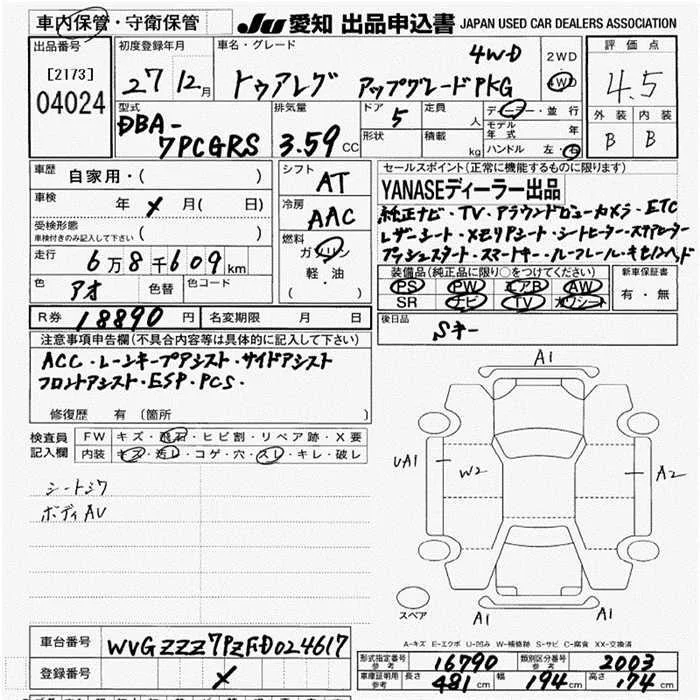 車内保管・守衛保管 JU 愛知 出品申込書 JAPAN USED CAR DEALERS ASSOCIATION
出品番号 初度登録年月 車名・グレード 評価点
[2173] 27 12月 トゥアレグ アップグレードPKG 4WD 2WD 4WD 4.5
04024
型式 排気量 ドア 定員 ディーラー・並行 外装 内装
DBA- 5 人 モデル年式 年
7PCGRS 3.59 CC 形状 積載 kg ハンドル 左・右 B B
車歴 自家用・( ) シフト AT セールスポイント(正常に機能するものに限ります)
YANASEディーラー出品
車検 年 月( 日) 冷房 AAC 純正ナビ・TV・アラウンドビューカメラ・ETC
受検形態 レザーシート・メモリアシート・シートヒーター・ステアヒーター
車検付きのみ記入して下さい ( ) 燃料 ガソリン プッシュスタート・スマートキー・ルーフレール・キセノンヘッド
走行 6万8千609km 軽・油 装備品(純正品に限り○をつけてください) 新車保証書
色 アオ 色替 色コード ( ) PS PW エアB AW 有・無
SR ナビ TV カワシート
R券 18890円 名変期限 月 日 後日品 Sキー
注意事項申告欄(不具合内容等は具体的に記入して下さい)
ACC・レーンキープアシスト・サイドアシスト
フロントアシスト・ESP・PCS・
修復歴 有 (箇所 )
検査員 FW キズ・飛石・ヒビ割・リペア跡・X要
記入欄 内装 キズ・汚レ・コゲ・穴・スレ・キレ・破レ
A1
UA1 W2 A2
シートシワ
ボディAU
スペア A1 A1
A-キズ E-エクボ U-凹み W-補修跡 S-サビ C-腐食 XX-交換済
車台番号 WVGZZZ7PZFD024617
型式指定番号 参考 16790 類別区分番号 参考 2003
登録番号 車庫証明用 参考 長さ 481cm 幅 194cm 高さ 174cm